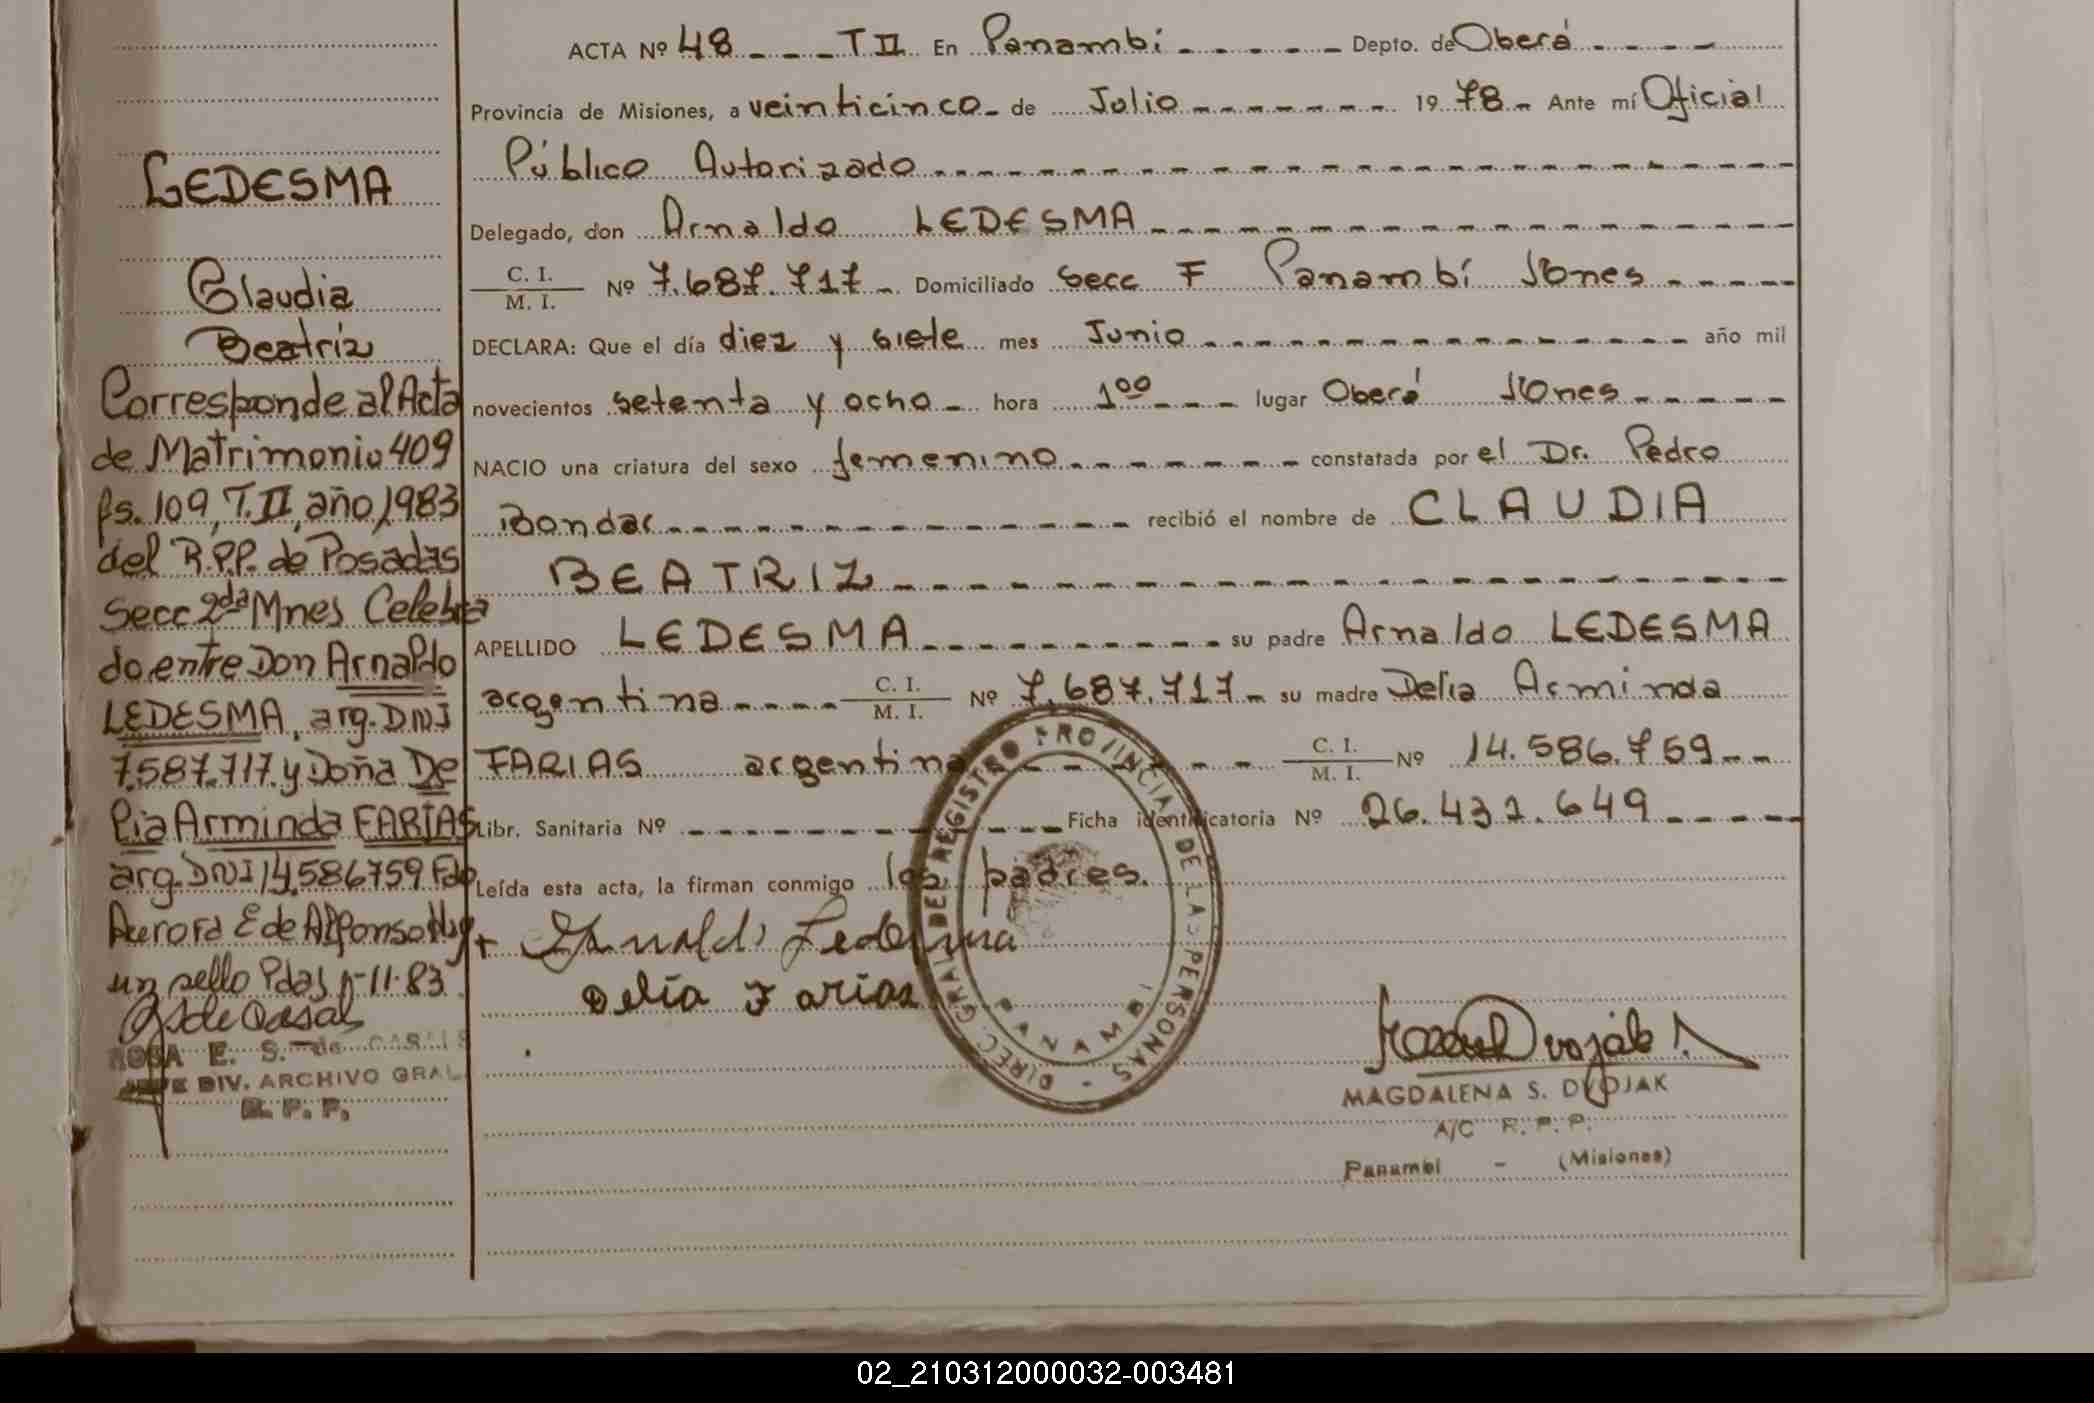 ACTA Nº 48 T II En Panambí Depto. de Oberá
Provincia de Misiones, a veinticinco de Julio 1978 Ante mí Oficial
Público Autorizado
Delegado, don Arnaldo LEDESMA
C. I. / M. I. Nº 7.687.717 Domiciliado Secc F Panambí Mones
DECLARA: Que el día diez y siete mes Junio año mil
novecientos setenta y ocho hora 1⁰⁰ lugar Oberá Mones
NACIO una criatura del sexo femenino constatada por el Dr. Pedro
Bondar recibió el nombre de CLAUDIA
BEATRIZ
APELLIDO LEDESMA su padre Arnaldo LEDESMA
argentina C. I. / M. I. Nº 7.687.717 su madre Delia Arminda
FARIAS argentina C. I. / M. I. Nº 14.586.759
Libr. Sanitaria Nº Ficha identificatoria Nº 26.432.649
Leída esta acta, la firman conmigo los padres.
Arnaldo Ledesma
Delia Farias
DIREC. GRAL. DE REGISTRO PROVINCIAL DE LAS PERSONAS -
PANAMBI
MAGDALENA S. DVOJAK
A/C R. P. P.
Panambi - (Misiones)
LEDESMA
Claudia
Beatriz
Corresponde al Acta
de Matrimonio 409
fs. 109, T. II, año 1983
del R.P.P. de Posadas
Secc 2da Mnes Celebra
do entre Don Arnaldo
LEDESMA, arg. DNI
7.587.717 y Doña De
lia Arminda FARIAS
arg. DNI 14.586759 Fdo
Aurora E de Alfonso Hay
un sello Pdas 1-11-83
ROSA E. S. de CASALS
JEFE DIV. ARCHIVO GRAL.
R. P. P.
02_210312000032-003481